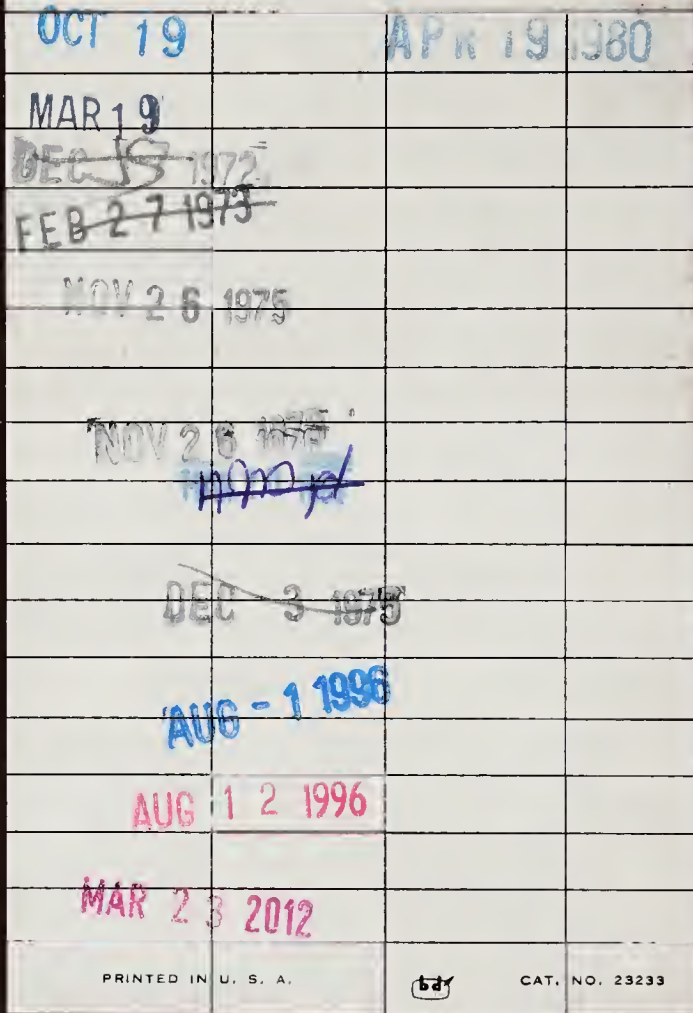 OCT 19 APR 19 1980
MAR 19
DEC 1972
FEB 27 1973
NOV 26 1975
NOV 26
DEC 3 1975
AUG - 1 1996
AUG 12 1996
MAR 23 2012
PRINTED IN U. S. A. bd CAT. NO. 23233